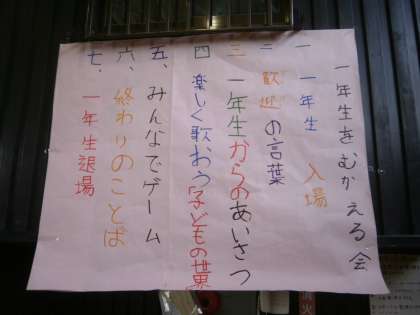 一年生をむかえる会
一 一年生 入場
二 歓迎の言葉
三 一年生からのあいさつ
四 楽しく歌おう「子どもの世
五、みんなでゲーム
六、終わりのことば
七、一年生退場